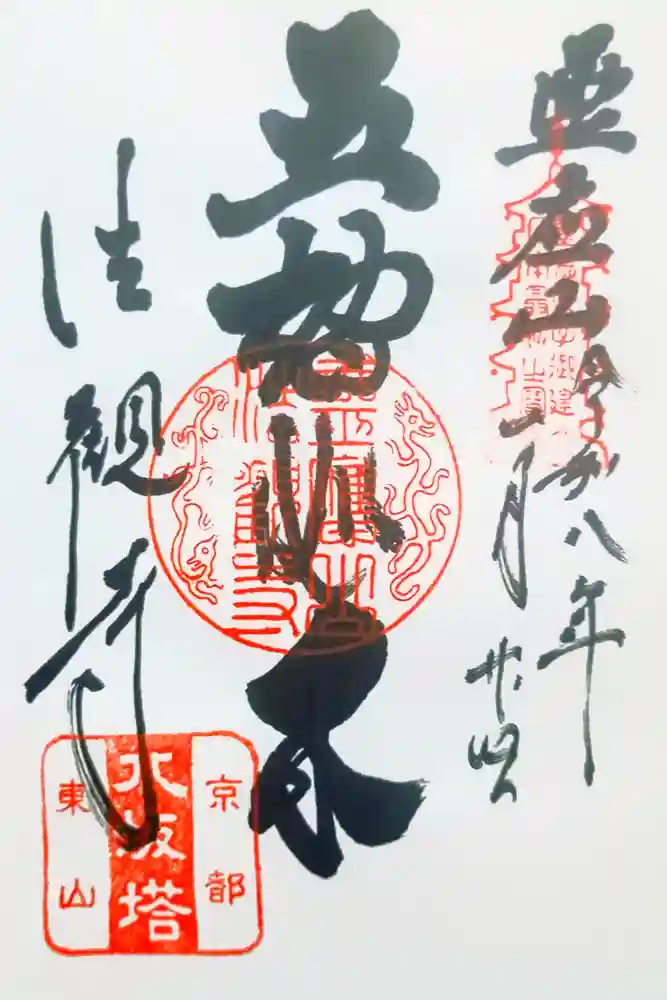 霊応山
平成廿八年
一月廿四
五智如来
法観寺
京都
八坂塔
東山